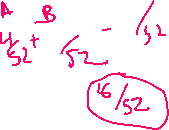 A B
4/52 + /52 - /52
16/52